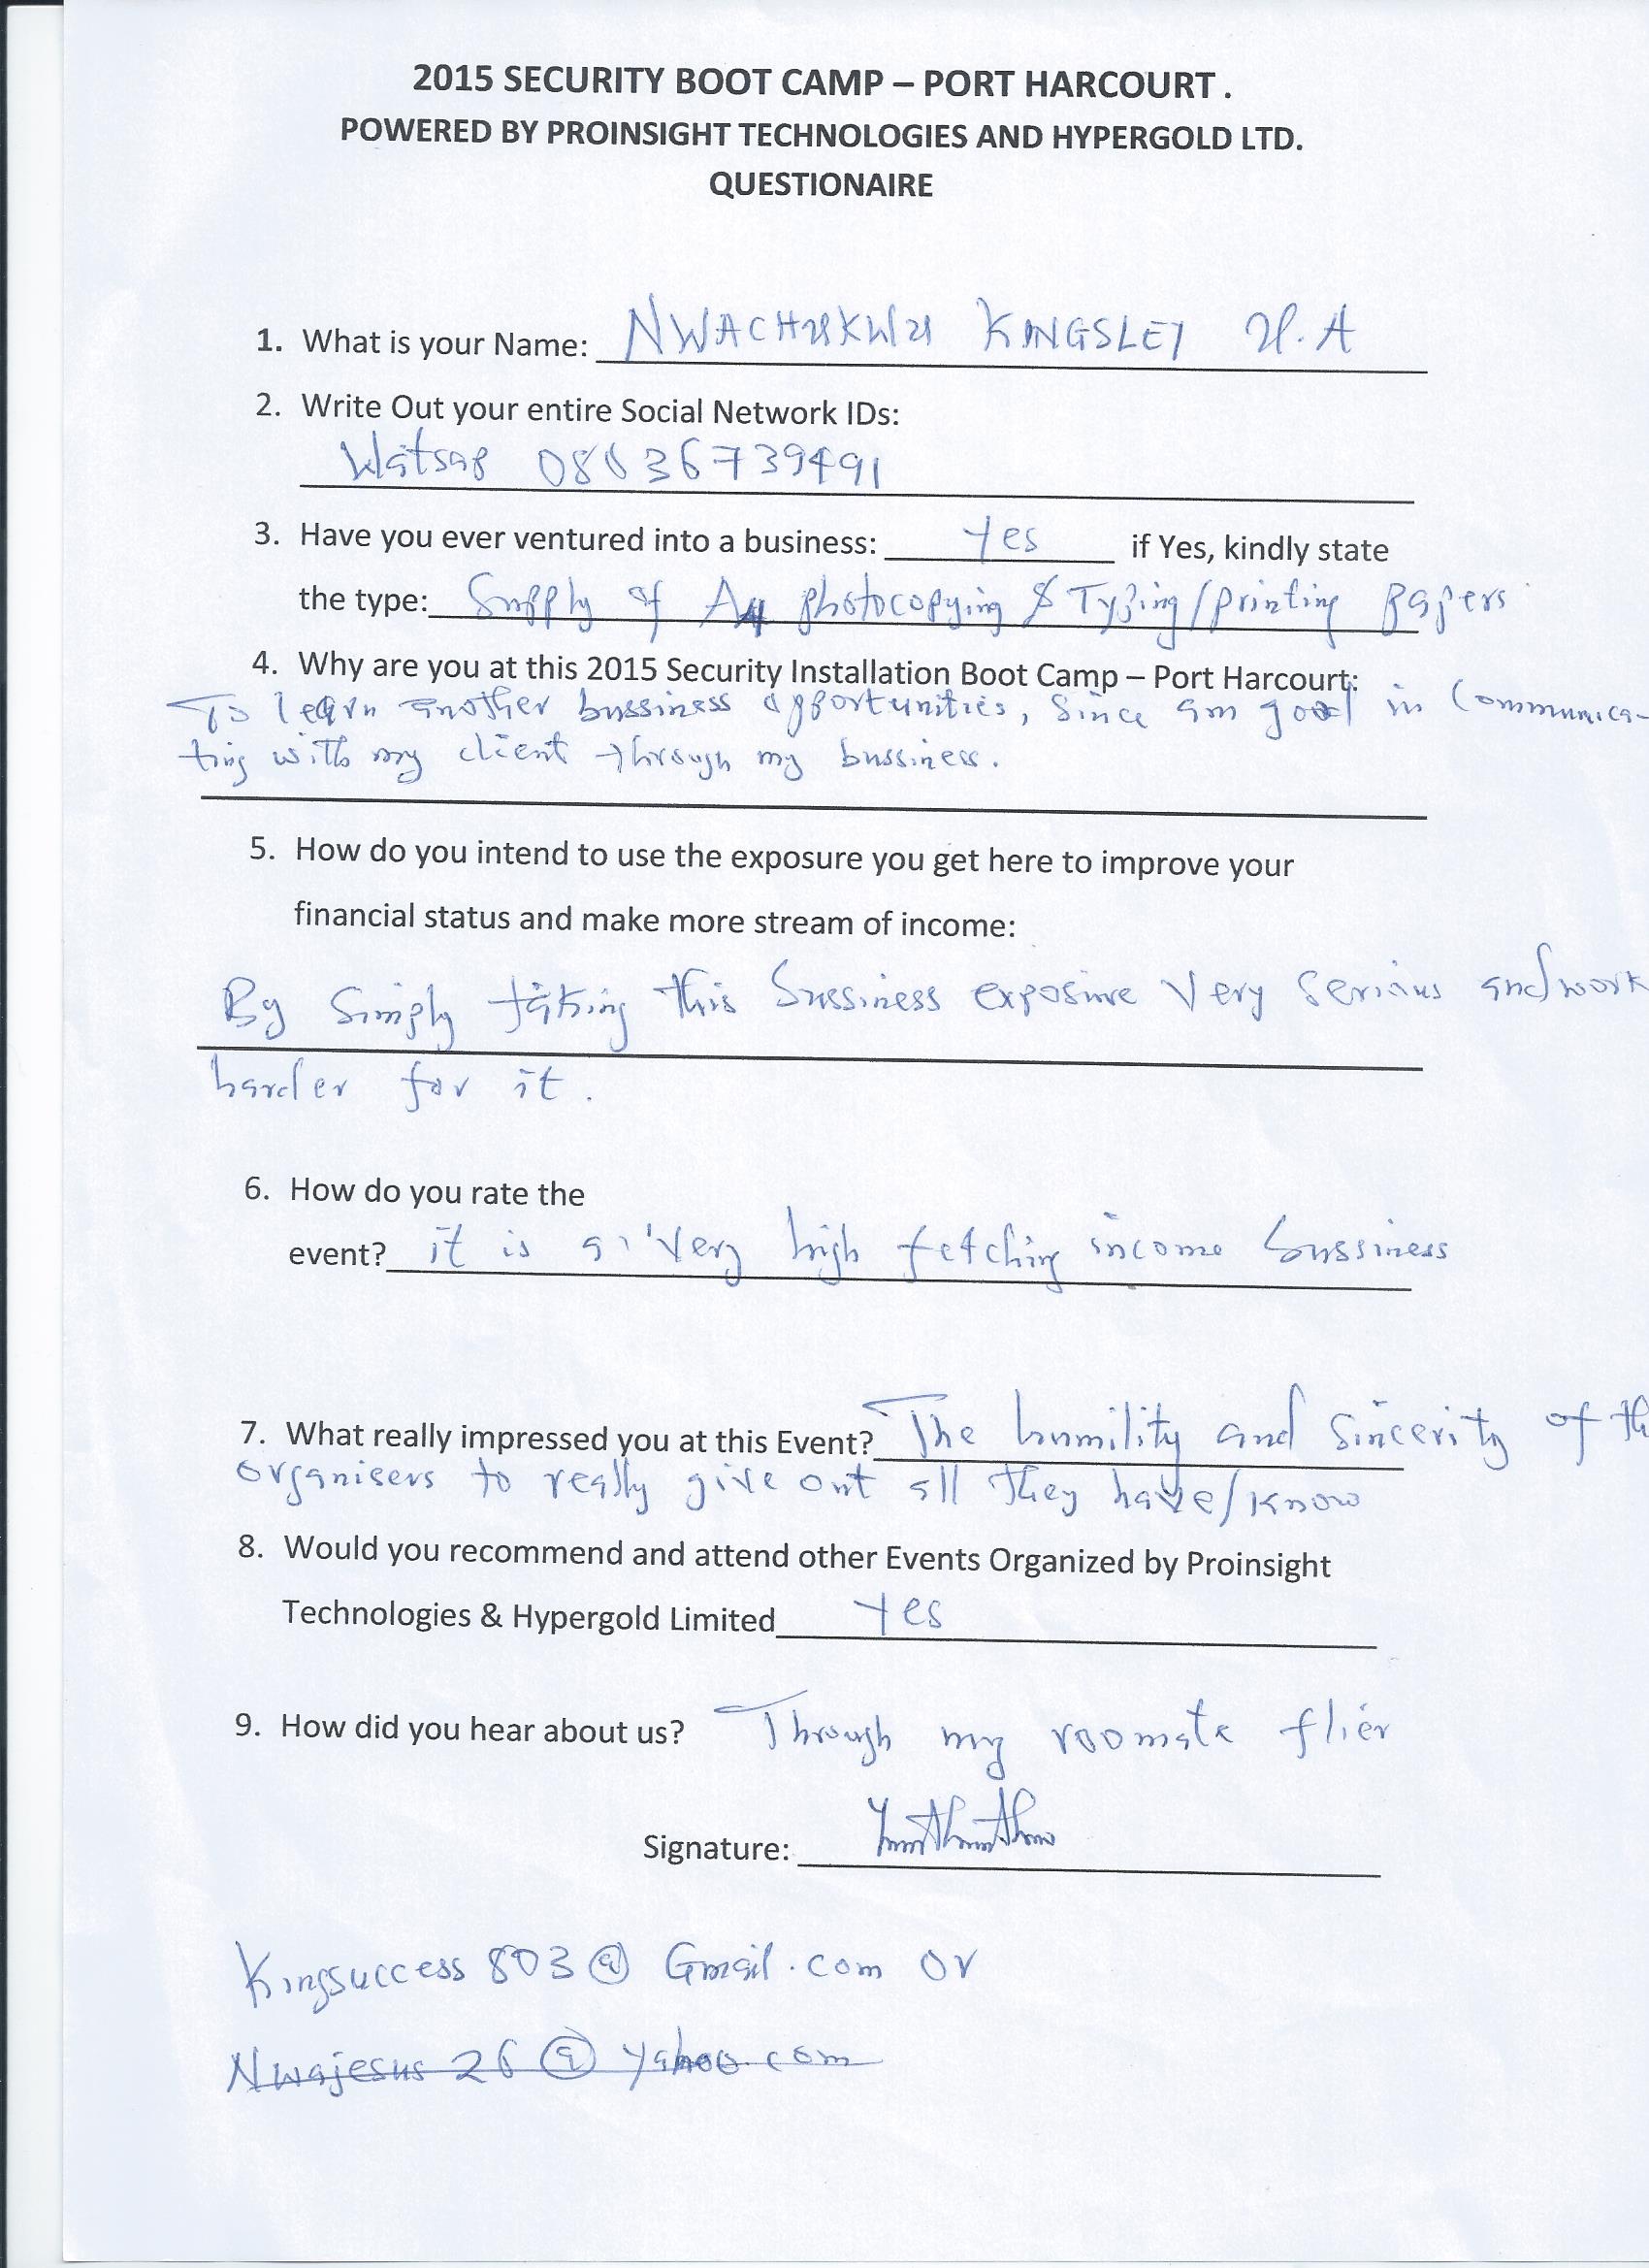 2015 SECURITY BOOT CAMP – PORT HARCOURT .
POWERED BY PROINSIGHT TECHNOLOGIES AND HYPERGOLD LTD.
QUESTIONAIRE
1. What is your Name: NWACHUKWU KINGSLEY U.A
2. Write Out your entire Social Network IDs:
Watsap
3. Have you ever ventured into a business: Yes if Yes, kindly state
the type: Supply of A4 photocopying & Typing/printing papers
4. Why are you at this 2015 Security Installation Boot Camp – Port Harcourt:
To learn another bussiness opportunities, Since am good in Communica-
ting with my client through my bussiness.
5. How do you intend to use the exposure you get here to improve your
financial status and make more stream of income:
By Simply taking this bussiness exposure Very Serious and work
harder for it.
6. How do you rate the
event? it is a Very high fetching income bussiness
7. What really impressed you at this Event? The humility and Sincerity of th
organisers to really give out all they have/know
8. Would you recommend and attend other Events Organized by Proinsight
Technologies & Hypergold Limited Yes
9. How did you hear about us? Through my roomate flier
Signature:
Kingsuccess 803 @ Gmail.com or
Nwajesus 26 @ yahoo.com